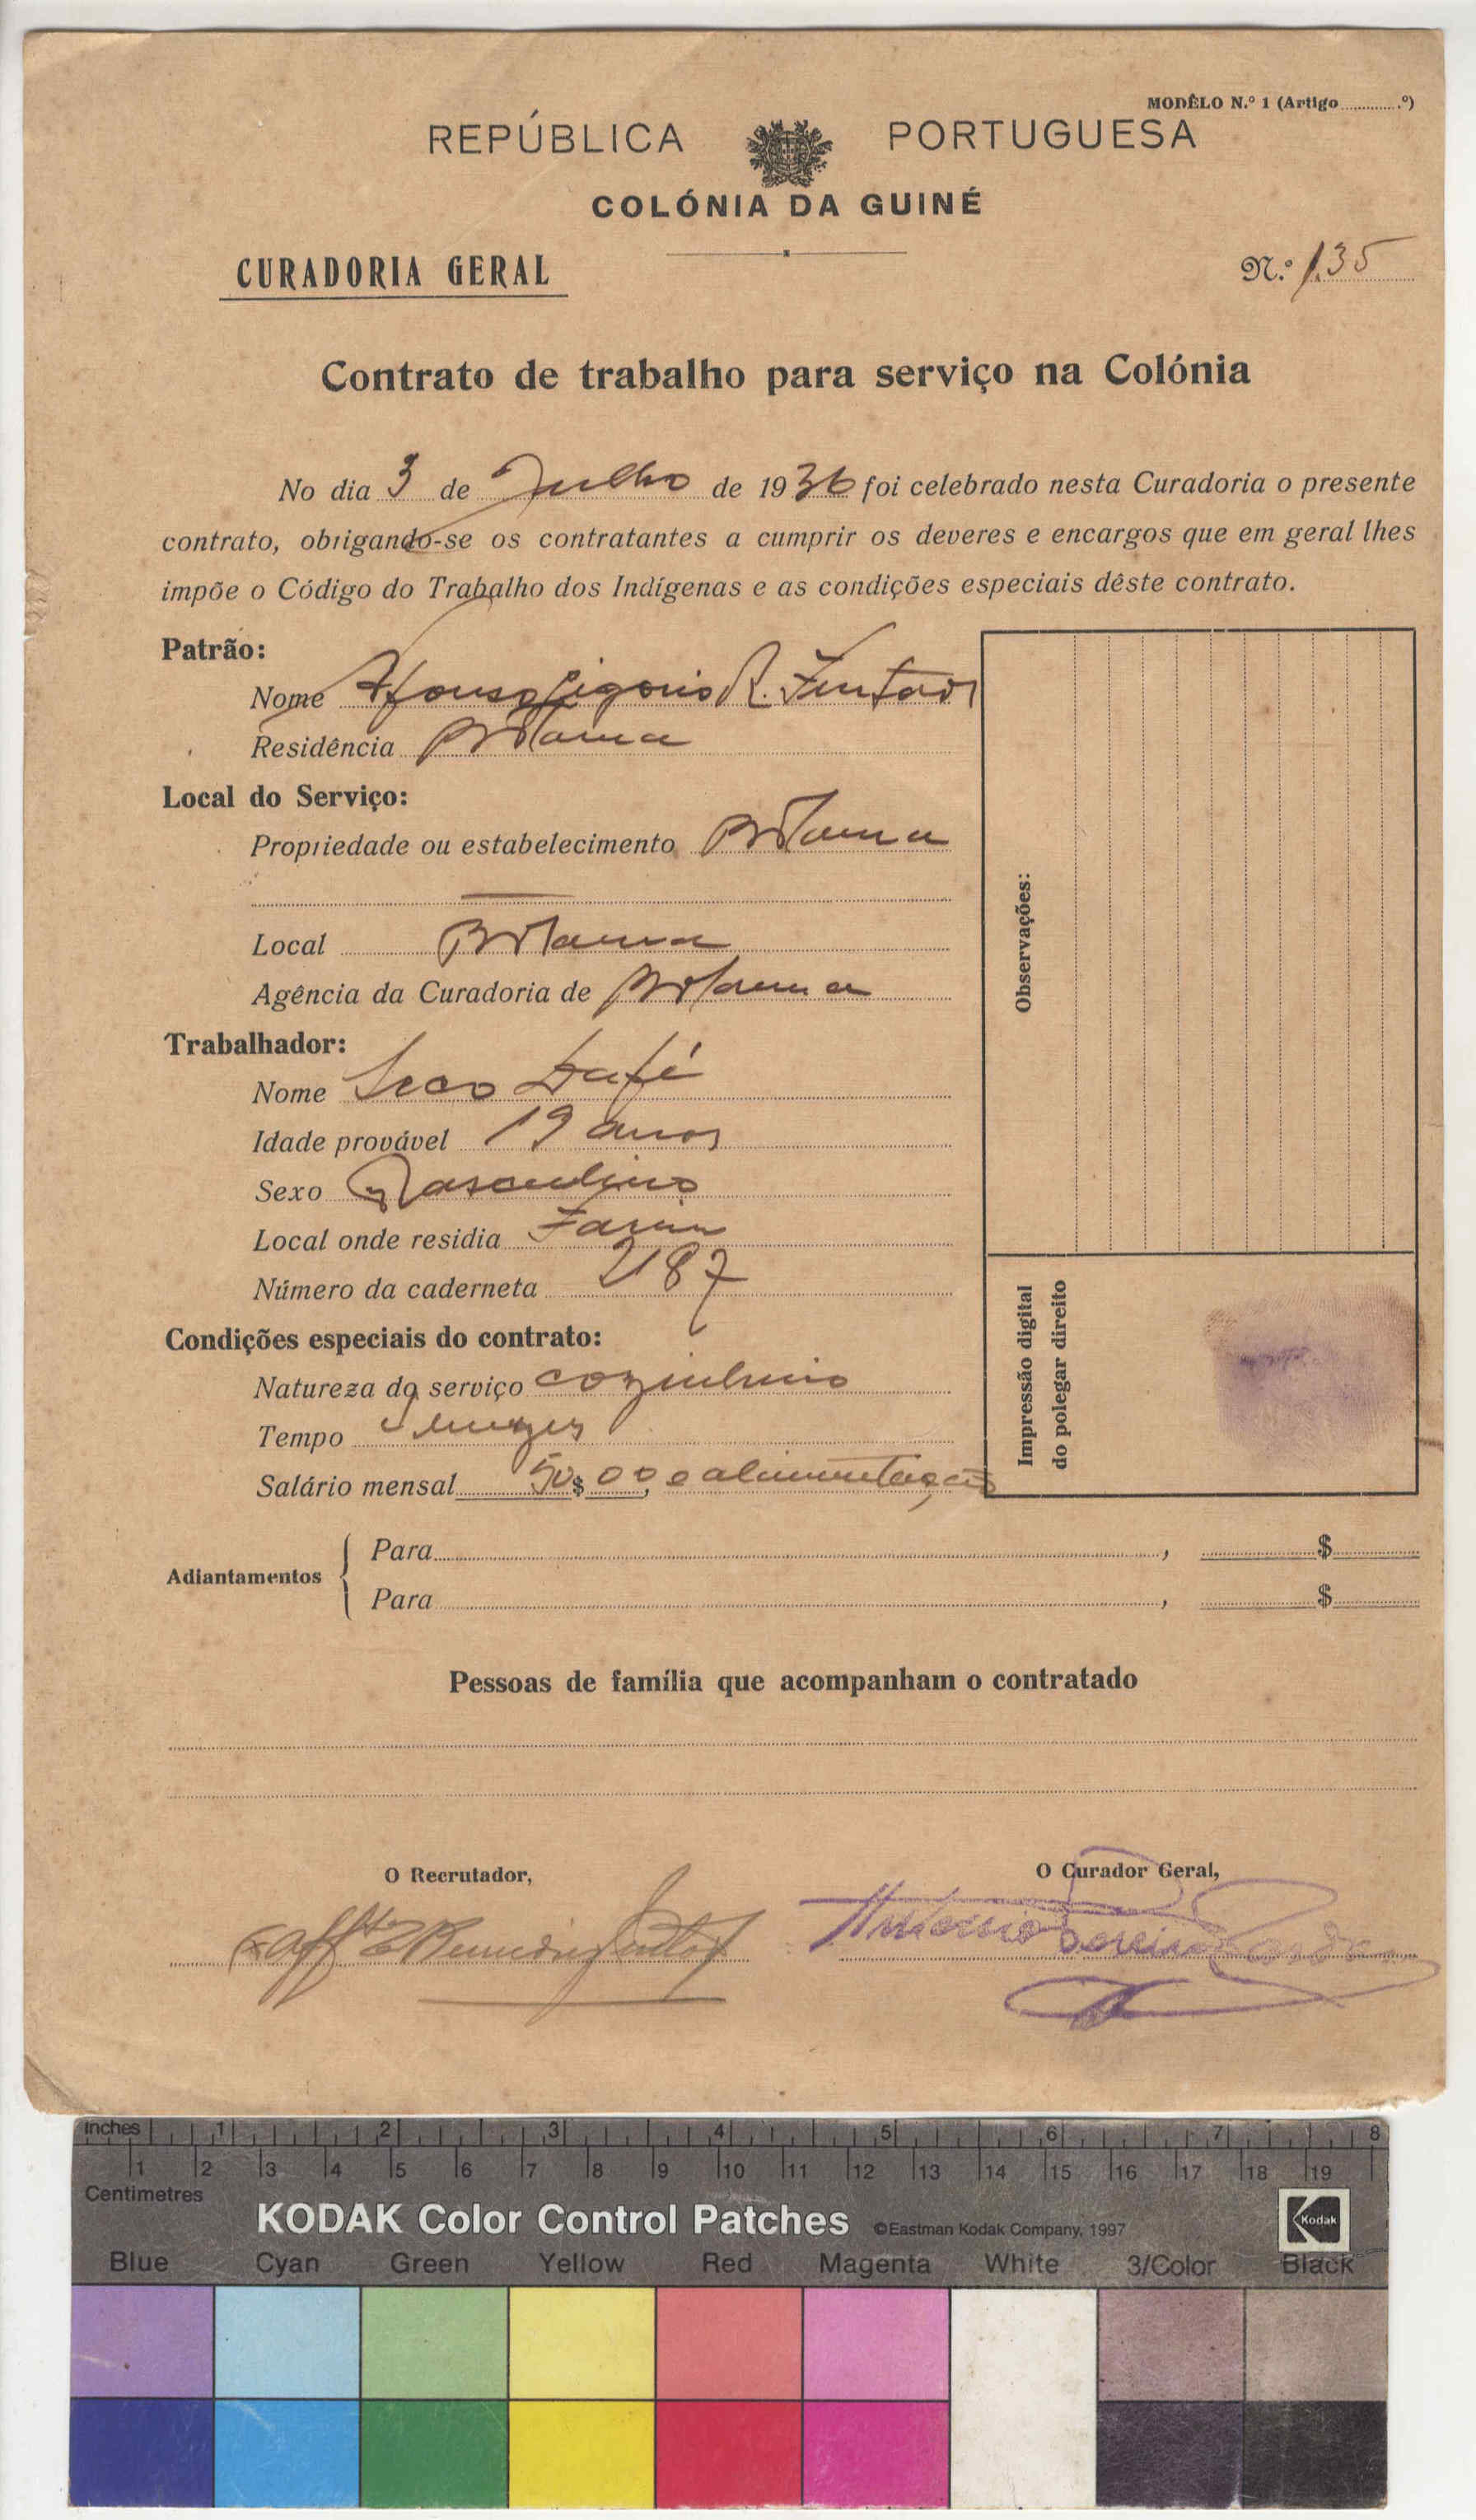 MODÊLO N.º 1 (Artigo ............º)
REPÚBLICA PORTUGUESA
COLÓNIA DA GUINÉ
CURADORIA GERAL
N.º 135
Contrato de trabalho para serviço na Colónia
No dia 3 de Julho de 1936 foi celebrado nesta Curadoria o presente
contrato, obrigando-se os contratantes a cumprir os deveres e encargos que em geral lhes
impõe o Código do Trabalho dos Indígenas e as condições especiais dêste contrato.
Patrão:
Nome Afonso Ligorio R.
Residência Bolama
Local do Serviço:
Propriedade ou estabelecimento Bolama
Local Bolama
Agência da Curadoria de Bolama
Trabalhador:
Nome Seco Dafé
Idade provável 19 anos
Sexo Masculino
Local onde residia Farim
Número da caderneta 2187
Condições especiais do contrato:
Natureza do serviço cozinheiro
Tempo mezes
Salário mensal 50$00, e alimentação
Observações:
Impressão digital
do polegar direito
Adiantamentos
Para , $
Para , $
Pessoas de família que acompanham o contratado
O Recrutador,
O Curador Geral,
Antonio Pereira Cardoso
inches 1 2 3 4 5 6 7 8
1 2 3 4 5 6 7 8 9 10 11 12 13 14 15 16 17 18 19
Centimetres
KODAK Color Control Patches ©Eastman Kodak Company, 1997
Kodak
Blue Cyan Green Yellow Red Magenta White 3/Color Black